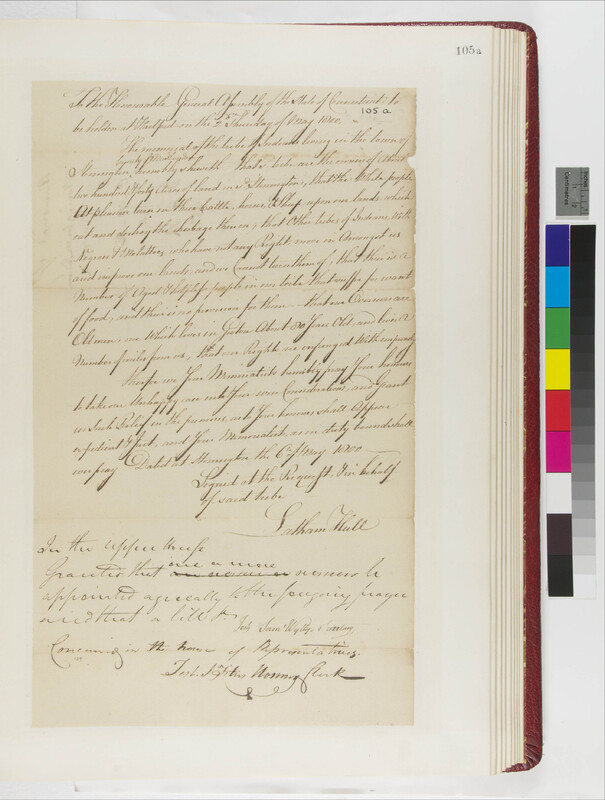 105a
To the Honourable General Assembly of the State of Connecticut to
105a
be holden at Hartford on the 2d Thursday of May 1800. —
The memorial of the tribe of Indians living in the town of
Stonington humbly sheweth that we are the owners of about
two hundred & forty acres of land in sd Stonington, that the White people
at pleasure turn in their Cattle, horses & sheep upon our lands, which
eat and destroy the herbage thereon, that Other tribes of Indians With
Negroes & Molattoes, who have not any Right, move in Amongst us
and improve our lands, and we Cannot turn them of, that there is a
Number of Aged & helpless people in our tribe that suffer for want
of food, and there is no provision for them — that our Overseers are
Old men, one Which lives in Groton About 80 Years Old, and lives a
Number of miles from us, that our Rights are infringed With impunity
Therefore we Your Memorialists humbly pray Your honours
to take our Unhappy case into Your wise Consideration, and Grant
us Such Relief in the premises, as to Your honours shall Appear
expedient & Just, and Your Memorialists, as in duty bound shall
ever pray Dated at Stonington the 6th of May 1800
Signed at the Request & in behalf
of said tribe
Latham Hull
In the upper House
one or more
Granted that overseers be
appointed agreeably to the foregoing prayer
and that a bill &c
Test Saml Wyllys Secretary
Concurred in the House of Representatives.
Test Clerk